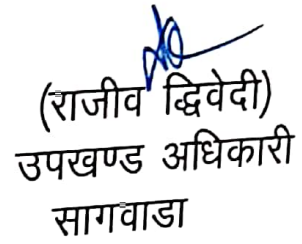 (राजीव द्धिवेदी)
उपखण्ड अधिकारी
सागवाडा